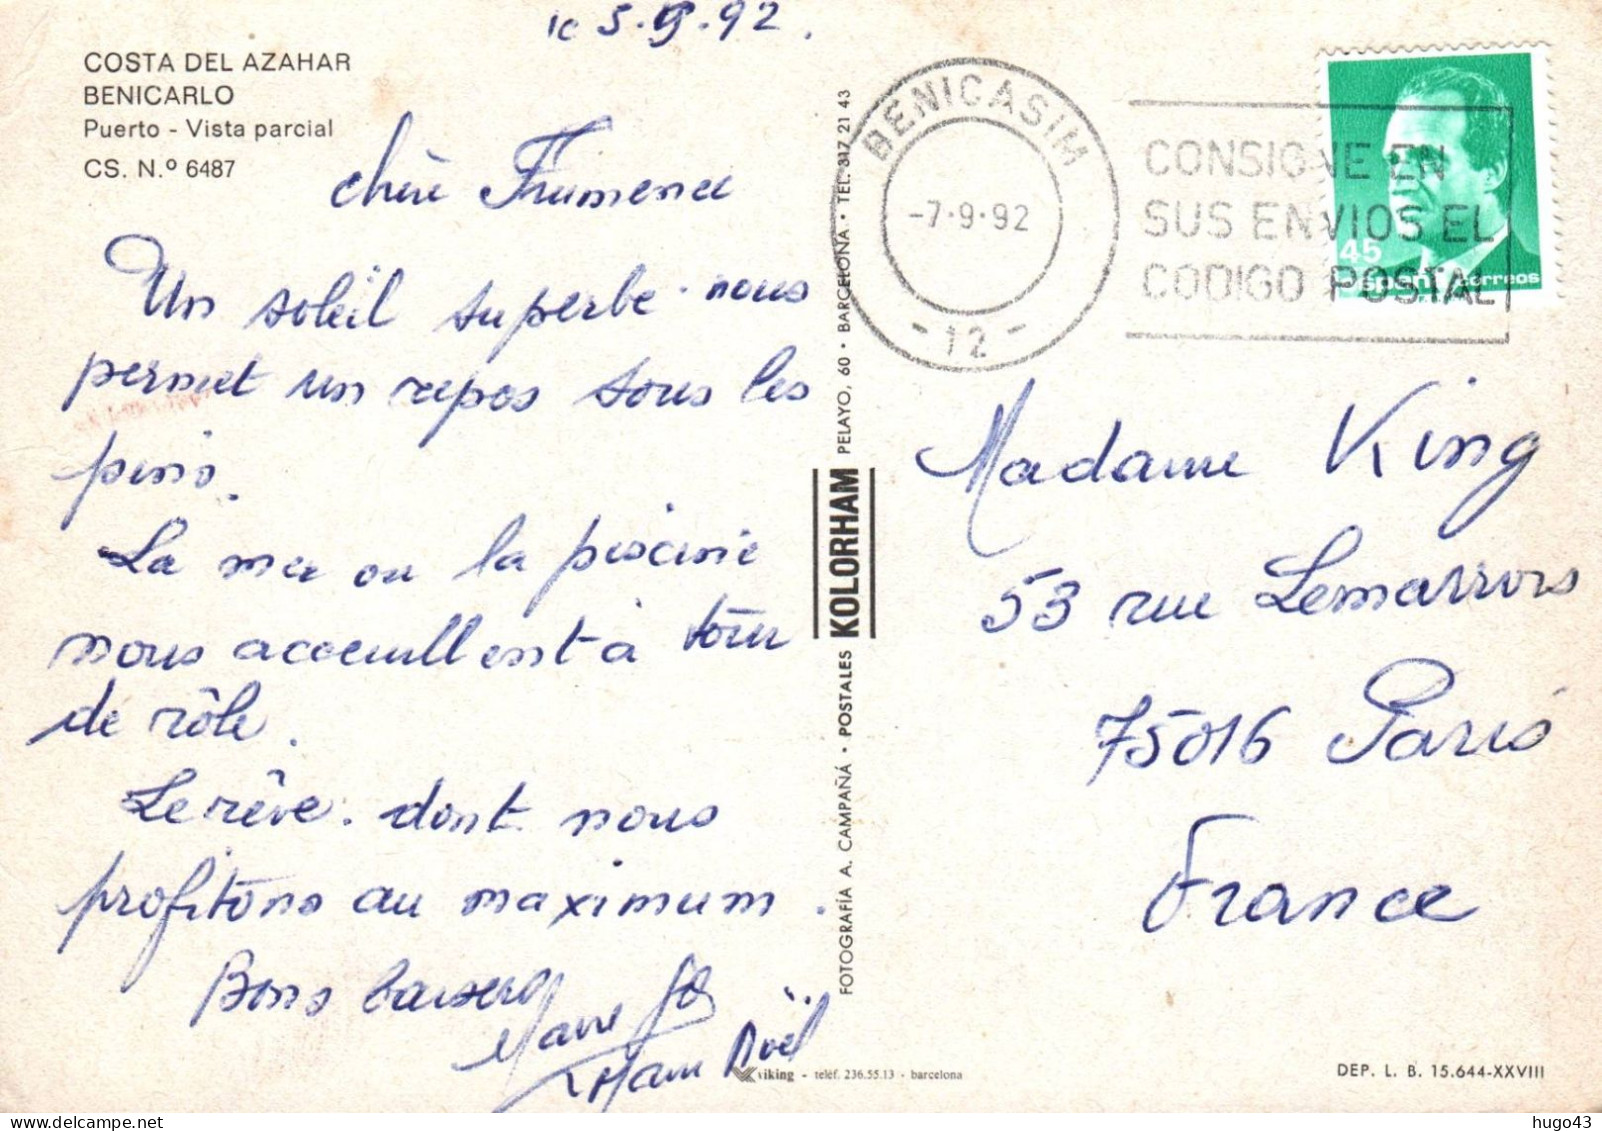 le 5.9.92.
COSTA DEL AZAHAR
BENICARLO
Puerto - Vista parcial
CS. N.º 6487
chère
Un soleil superbe nous
permet un repos sous les
pins.
La mer ou la piscine
nous accueillent à tour
de rôle.
Le rêve. dont nous
profitons au maximum.
Bons baisers
Marie
Noël
FOTOGRAFÍA A. CAMPAÑÁ · POSTALES KOLORHAM PELAYO, 60 · BARCELONA · TEL. 317 21 43
BENICASIM
-7·9·92
- 12 -
CONSIGNE EN
SUS ENVIOS EL
CODIGO POSTAL
45
España correos
Madame King
53 rue Lemarrois
75016 Paris
France
viking - teléf. 236.55.13 - barcelona
DEP. L. B. 15.644-XXVIII
hugo43